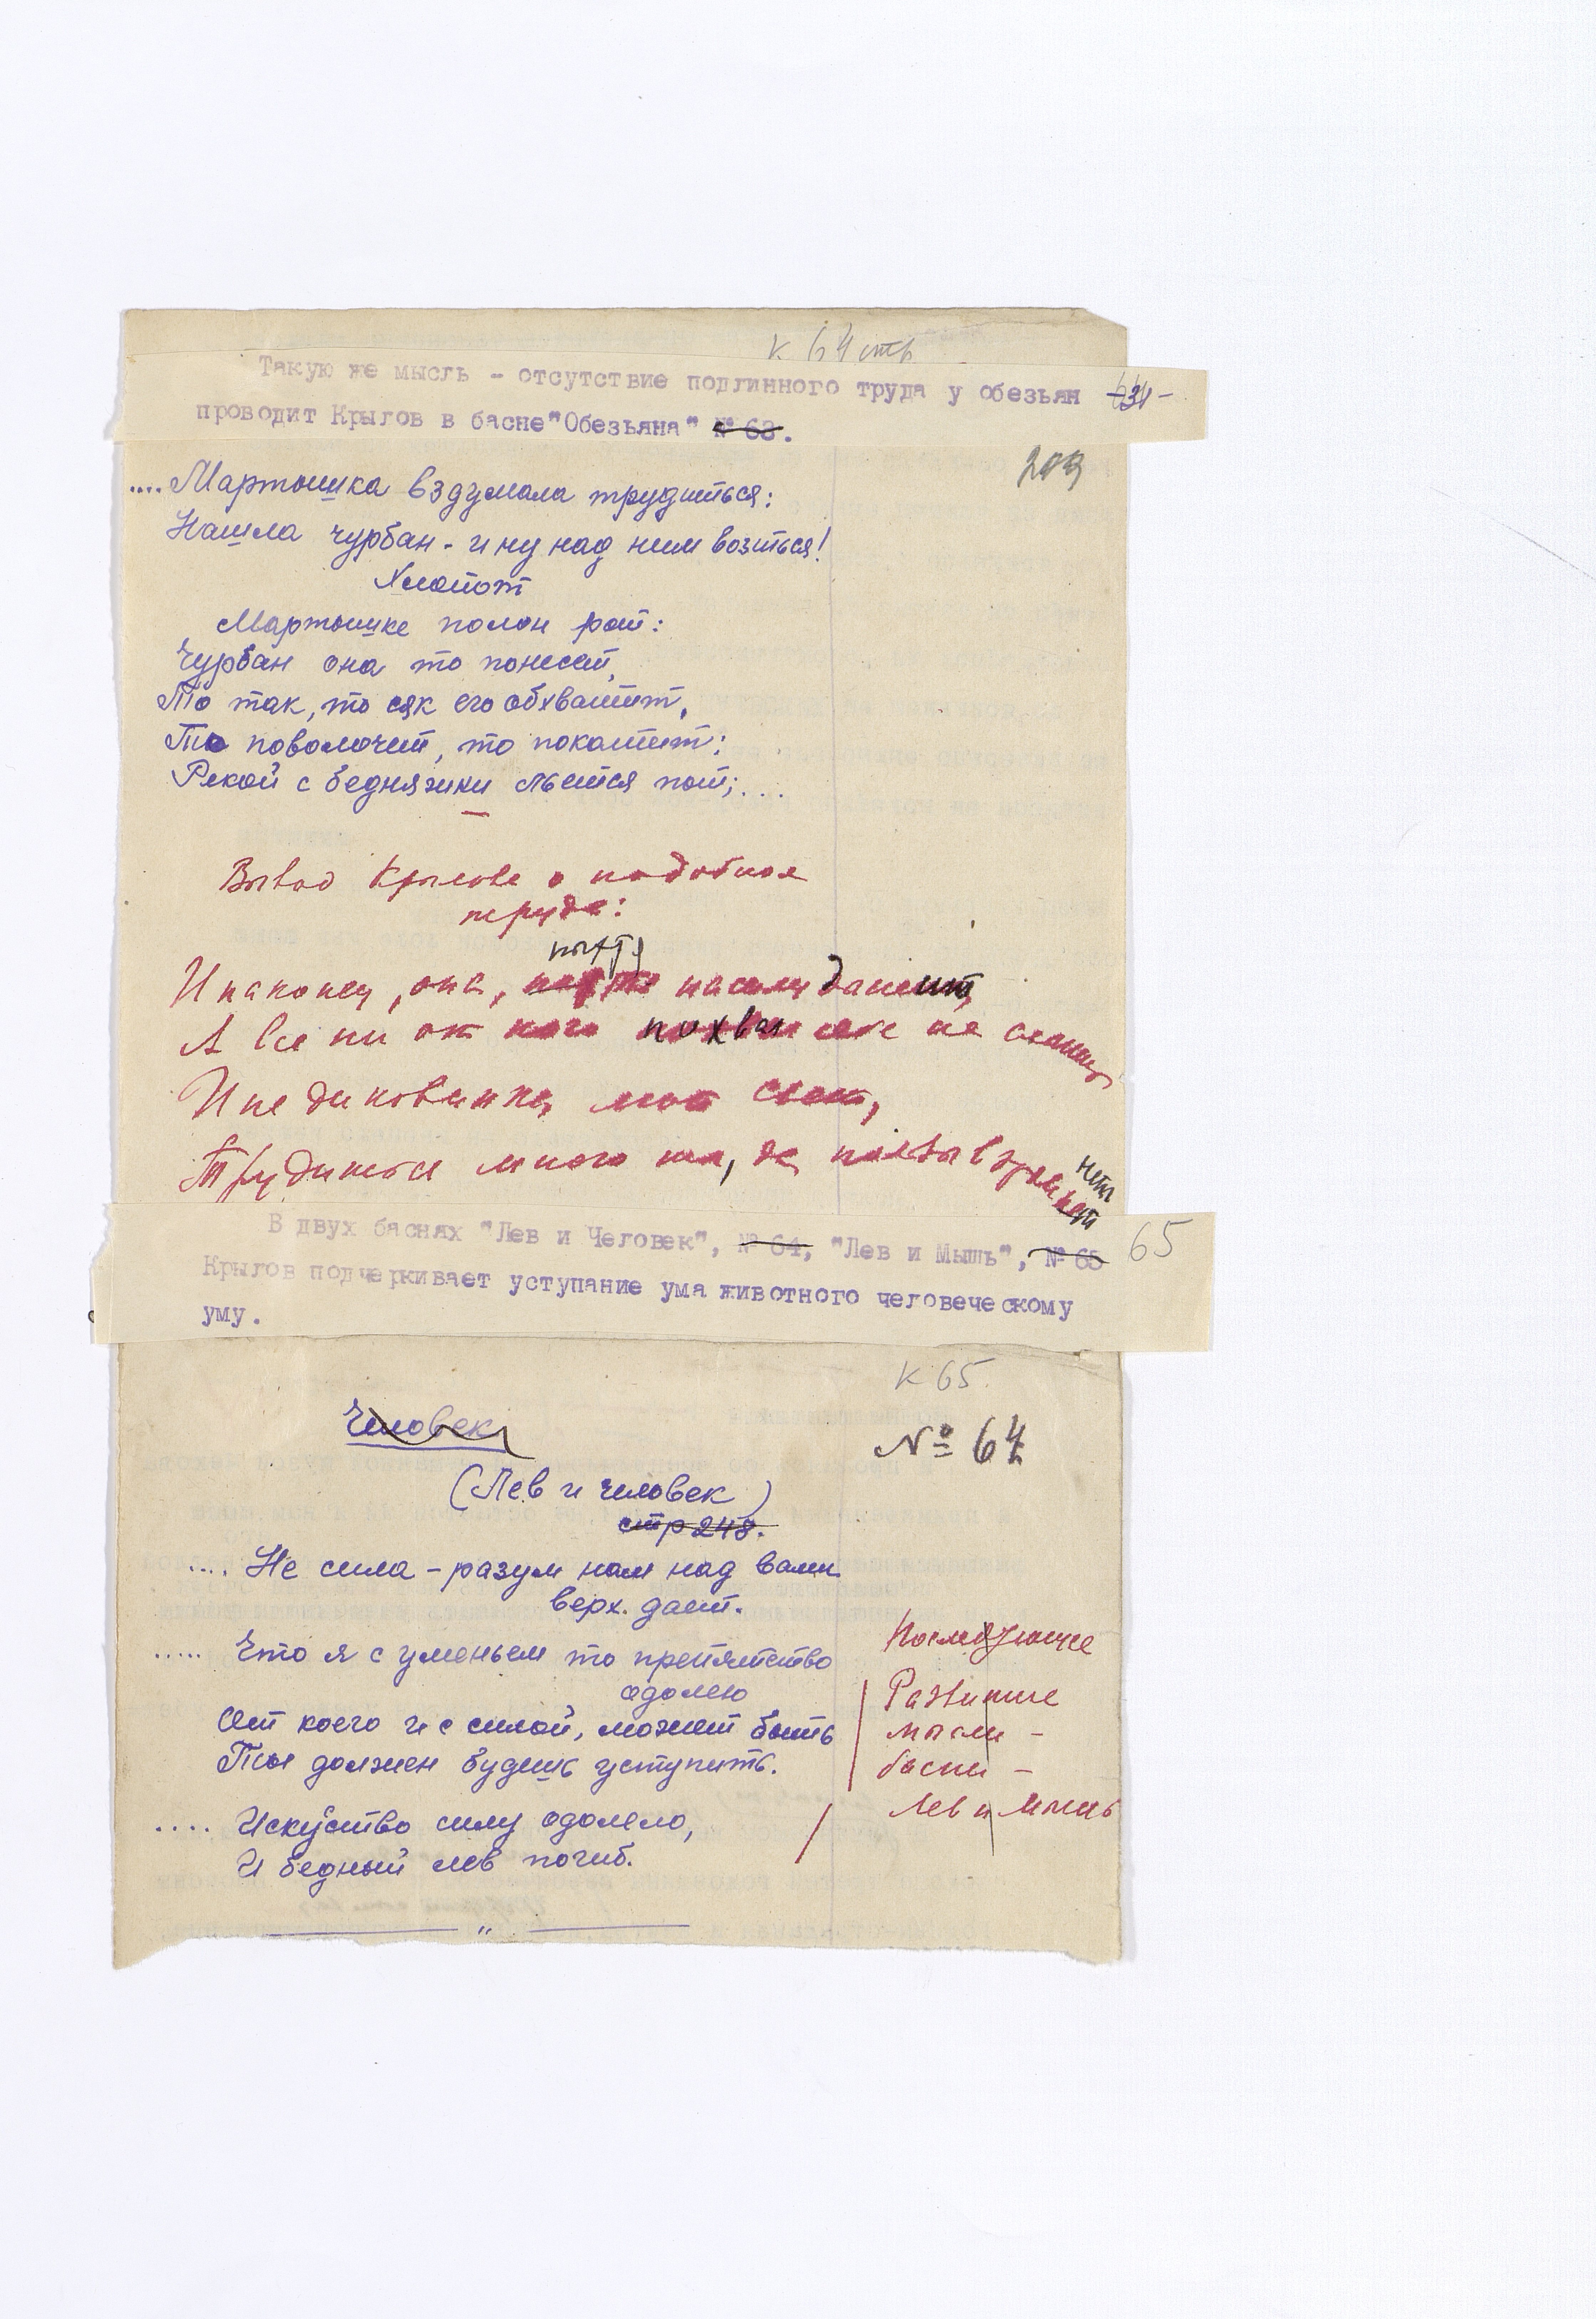 к 64 стр
Такую же мысль - отсутствие подлинного труда у обезьян
проводит Крылов в басне "Обезьяна" № 63.
203
.... Мартышка вздумала трудиться:
Нашла чурбан - и ну над ним возиться!
Хлопот
Мартышке полон рот:
Чурбан она то понесет,
То так, то сяк его обхватит,
То поволочет, то покатит;
Рекой с бедняжки льется пот; ...
Вывод Крылова о подобном
труде:
пыхтя
И наконец, она, насилу дышит,
А все ни от кого похвал себе не слышит
И не диковинка, мой свет,
Трудишься много ты, да пользы в этом нет
нет
В двух баснях "Лев и Человек", № 64, "Лев и Мышь", № 65 65
Крылов подчеркивает уступание ума животного человеческому
уму.
к 65.
Человек
№ 64
(Лев и человек)
стр 248.
.... Не сила - разум нам над вами
верх. дает.
..... Что я с уменьем то препятство
одолею
От коего и с силой, может быть
Ты должен будешь уступить.
.... Искуство силу одолело,
И бедный лев погиб.
"
Последующее
Развитие
мысли -
басни -
Лев и Мышь